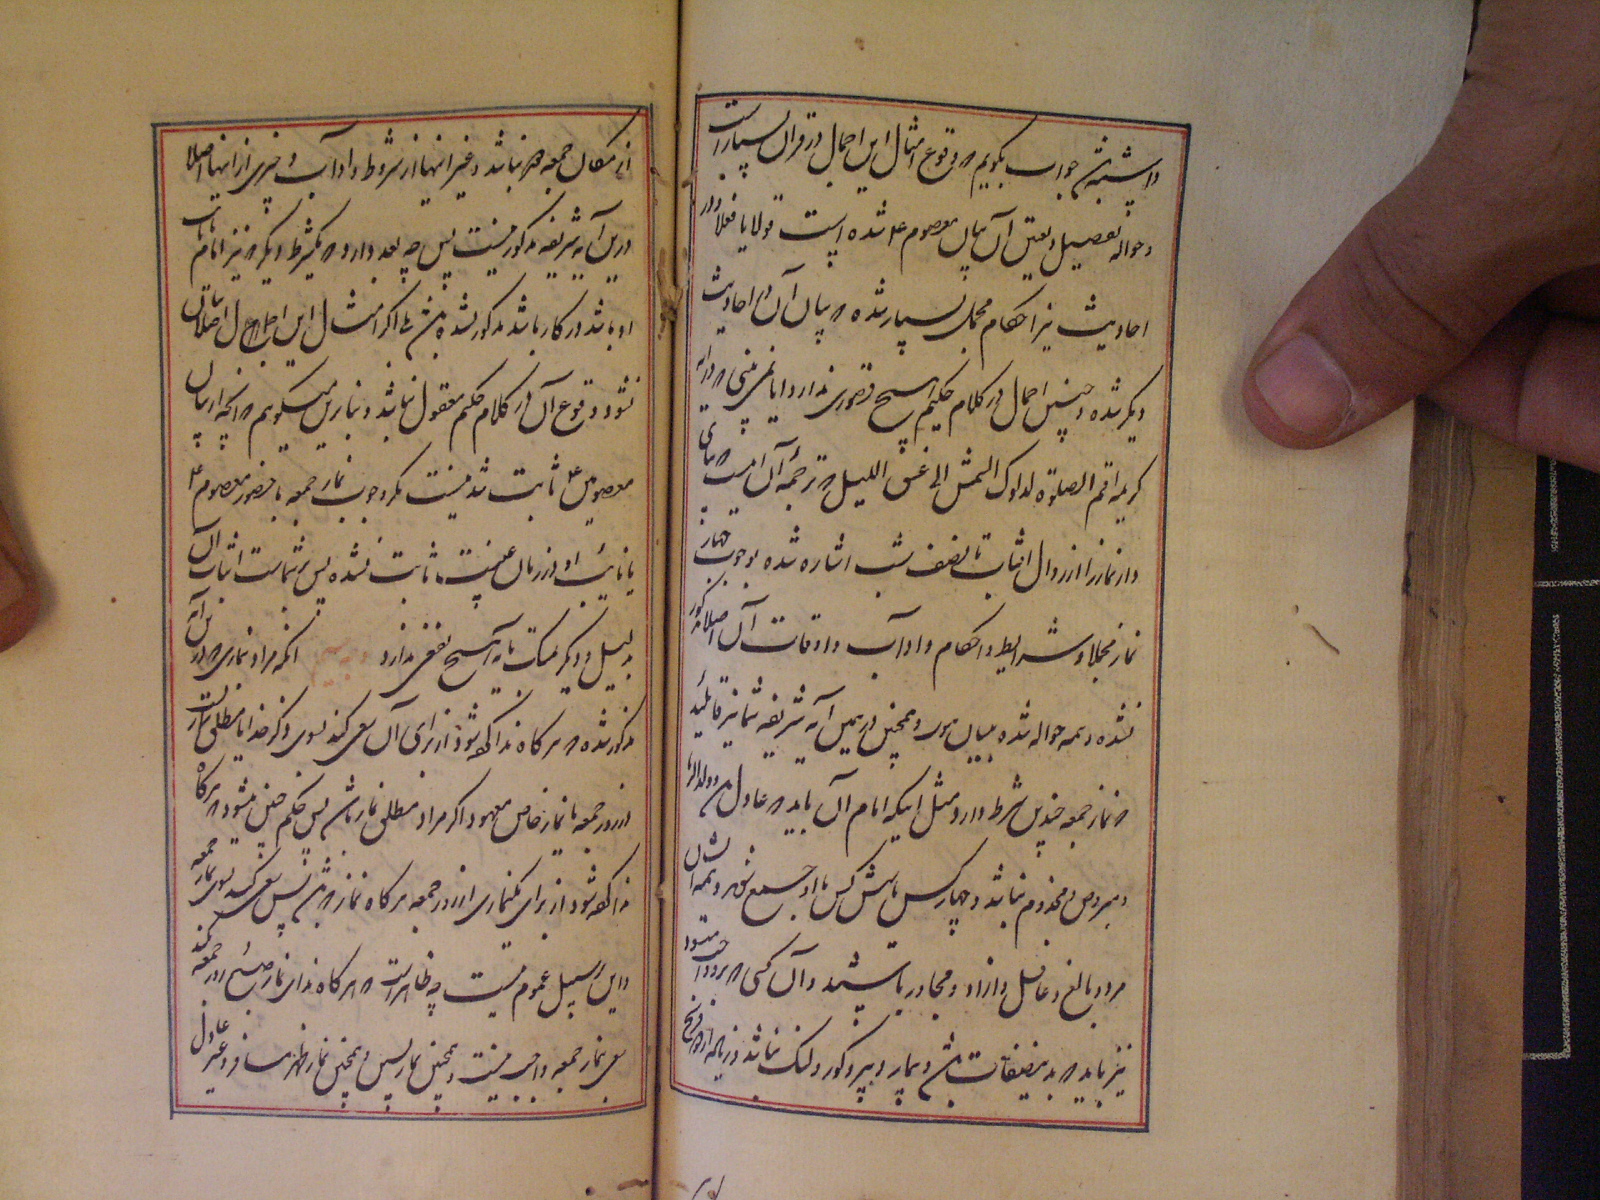 داشته باشد جواب بگویم که وقوع امثال این اجمال در قرآن بسیار است
و حواله تفصیل و تعیین آن به بیان معصوم ع شده است قولا یا فعلا و در
احادیث نیز احکام مجمل بسیار شده که بیان آن در احادیث
دیگر شده و چنین اجمال در کلام حکیم هیچ قصوری ندارد ایا نمی بینی که در ایه
کریمه اقم الصلوة لدلوک الشمس الی غسق اللیل که ترجمه آن است که بپای
دار نماز را از زوال افتاب تا نصف شب اشاره شده بوجوب چهار
نماز مجملا و شرایط و احکام و اداب و اوقات آن اصلا مذکور
نشده و همه حواله شده به بیان رسول و همچنین در همین آیه شریفه شما نیز قائلید
که نماز جمعه چندین شرط دارد مثل اینکه امام آن باید که عادل باشد و ولد الزنا
و مبروص و مجذوم نباشد و چهار کس یا شش کس با او جمع شوند و همه ایشان
مرد و بالغ و عاقل و ازاد و مجاور باشند و آن کسی که برو واجب میشود
نیز باید که بدین صفات باشد و بیمار و پیر و کور و لنگ نباشد و زیاده از دو فرسخ
از مکان جمعه دور نباشد و غیر اینها از شروط و اداب و چیزی از اینها اصلا
در این آیه شریفه مذکور نیست پس چه بعد دارد که یکشرط دیگر که نیز امام یا نایب
او باشد در کار باشد مذکور نشده باشد بلی اگر امثال این اجمال اصلا واقع
نشود و وقوع آن در کلام حکیم معقول نباشد و بنابرین میگویم که انچه از بیان
معصومین ع ثابت شد نیست مگر وجوب نماز جمعه با حضور معصوم ع
یا نایب او و در زمان غیبت ثابت نشده پس بر شماست اثبات آن
بدلیل دیگر و تمسک بایه هیچ نفعی ندارد انکه مراد نمازی که در این آیه
مذکور شده که هر گاه ندا کرده شود از برای آن سعی کنید بسوی ذکر خدا یا مطلق نماز است
در روز جمعه یا نماز خاص معهود اگر مراد مطلق نماز باشد پس حکم چنین میشود که هر گاه
ندا کرده شود از برای یکنمازی از روز جمعه هر گاه نماز که باشد پس سعی کنید بسوی نماز جمعه
و این بر سبیل عموم نیست چه ظاهر است که هر گاه ندای نماز صبح روز جمعه کنند
سعی نماز جمعه واجب نیست و همچنین نماز پسین و همچنین نماز ظهر مسافر و غیر عادل